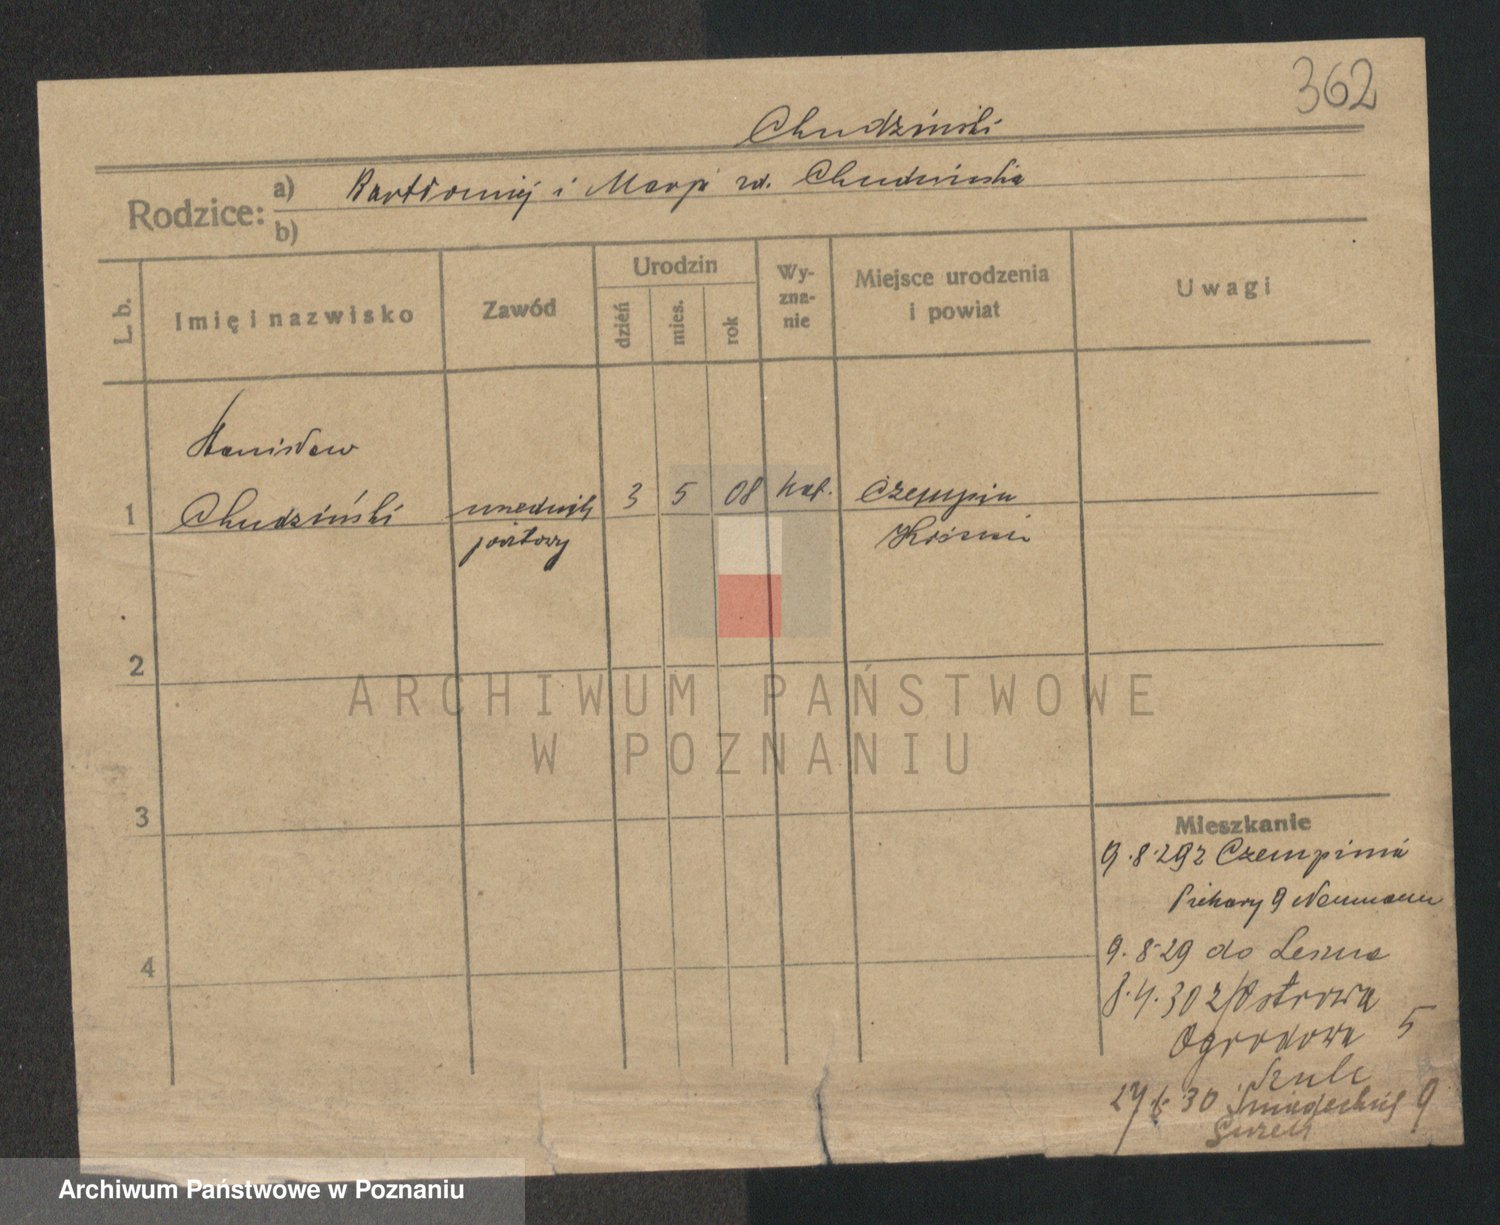 362
Chudziński
Rodzice: a) Bartłomiej i Marja zd. Chudzińska
b)
L. b.
Imię i nazwisko
Zawód
Urodzin
dzień
mies.
rok
Wy-
zna-
nie
Miejsce urodzenia
i powiat
Uwagi
Stanisław
1 Chudziński urzednik 3 5 08 kat. Czempin
Kościan
2
ARCHIWUM PAŃSTWOWE
W POZNANIU
3
Mieszkanie
9.8.29 z Czempinia
Piekary 9 Neumann
9.8.29 do Leszna
4
8.4.30 z/Ostrowa
Ogrodowa 5
Szulc
30 9
Archiwum Państwowe w Poznaniu